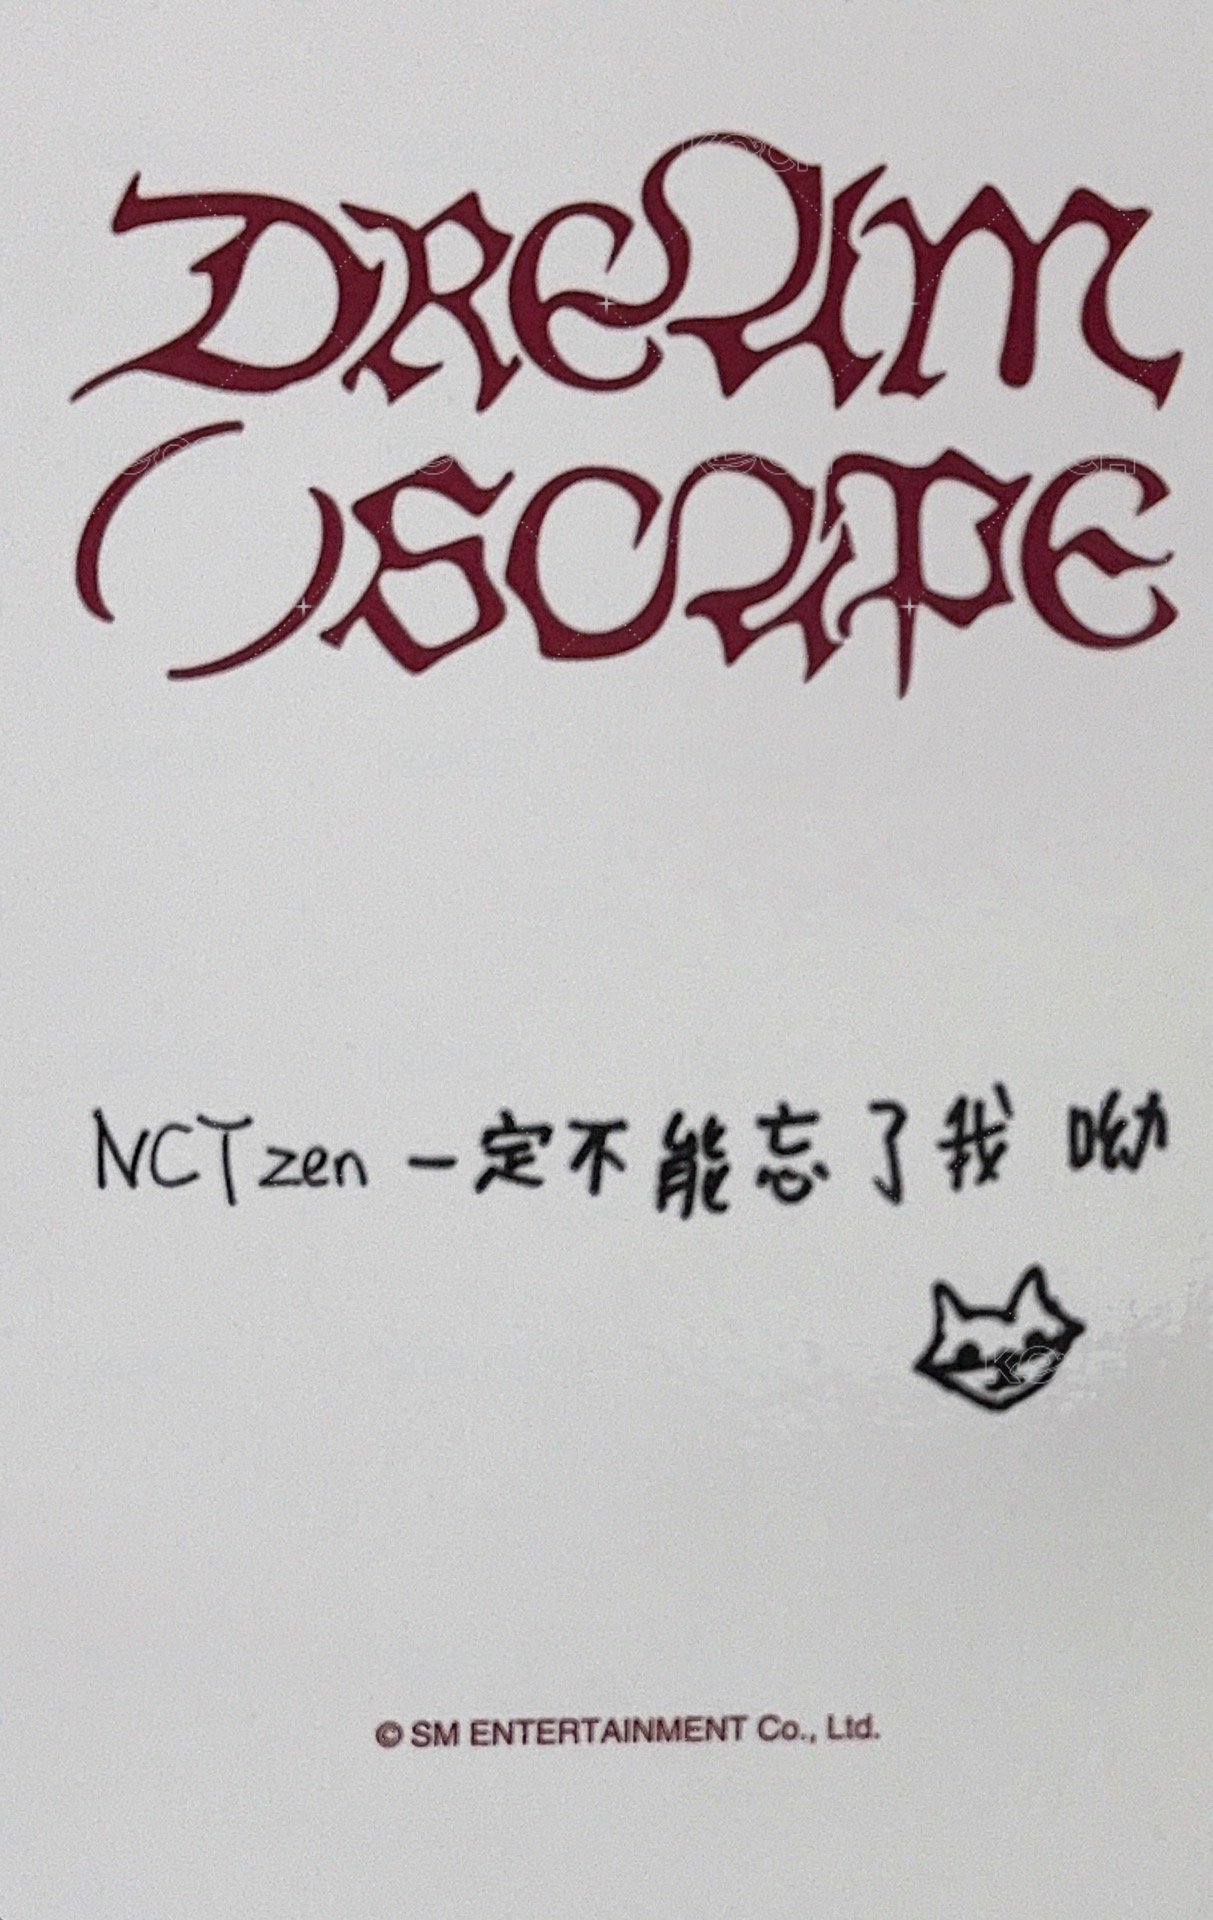 DREAM
( )SCAPE
NCTzen 一定不能忘了我 呦
© SM ENTERTAINMENT Co., Ltd.